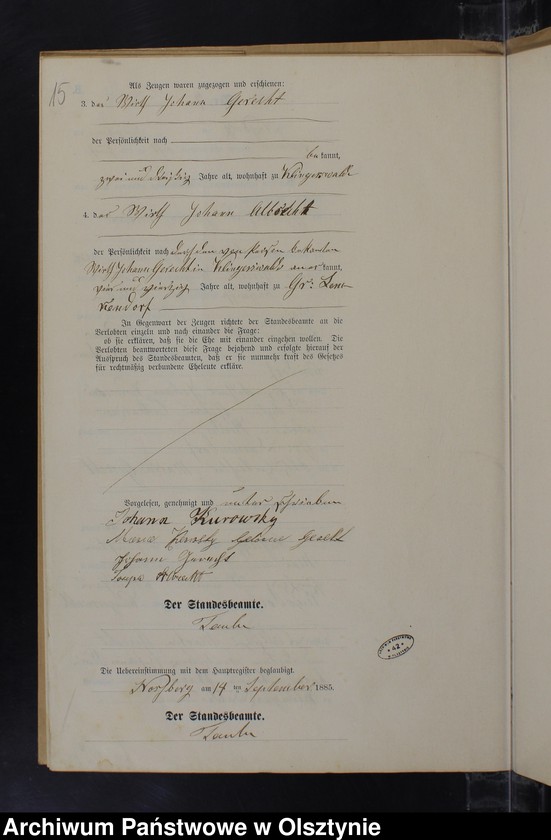 15
Als Zeugen waren zugezogen und erschienen:
3. der Wirth Johann Gerecht
der Persönlichkeit nach
be kannt,
zwei und dreißig Jahre alt, wohnhaft zu Klingerswalde
4. der Wirth Johann Albrecht
der Persönlichkeit nach durch den von Person bekannten
Wirth Johann Gerecht in Klingerswalde aner kannt,
vier und vierzig Jahre alt, wohnhaft zu Gr:
kendorf
In Gegenwart der Zeugen richtete der Standesbeamte an die
Verlobten einzeln und nach einander die Frage:
ob sie erklären, daß sie die Ehe mit einander eingehen wollen. Die
Verlobten beantworteten diese Frage bejahend und erfolgte hierauf der
Ausspruch des Standesbeamten, daß er sie nunmehr kraft des Gesetzes
für rechtmäßig verbundene Eheleute erkläre.
Vorgelesen, genehmigt und unterschrieben
Johann Kurowsky
Maria geborne
Johann Gerecht
Albrecht
Der Standesbeamte.
Die Uebereinstimmung mit dem Hauptregister beglaubigt.
am 14 ten September 1885.
Der Standesbeamte.
42
Archiwum Państwowe w Olsztynie